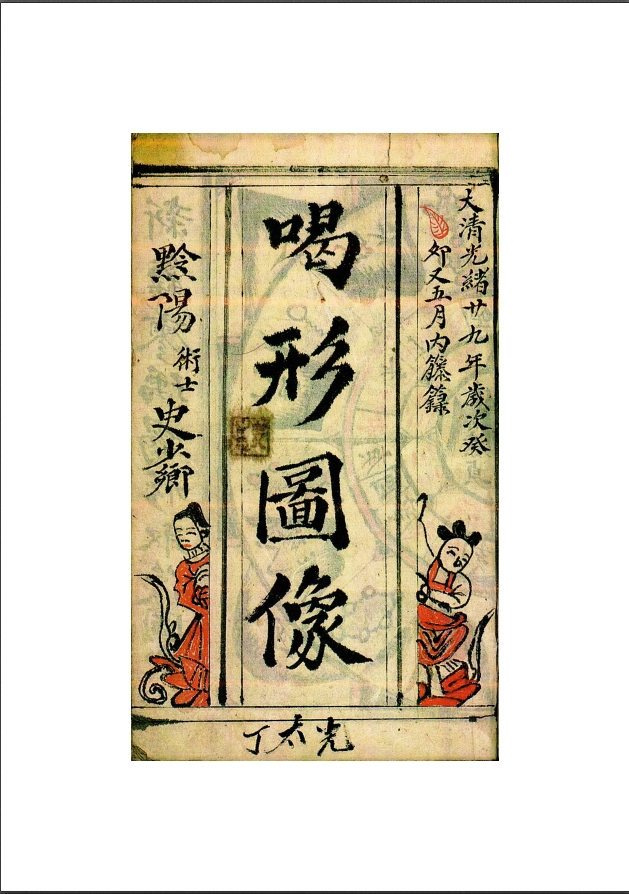 大清光緒廿九年歲次癸
卯又五月內籐籙
喝形圖像
黔陽術士史少卿
丁太光